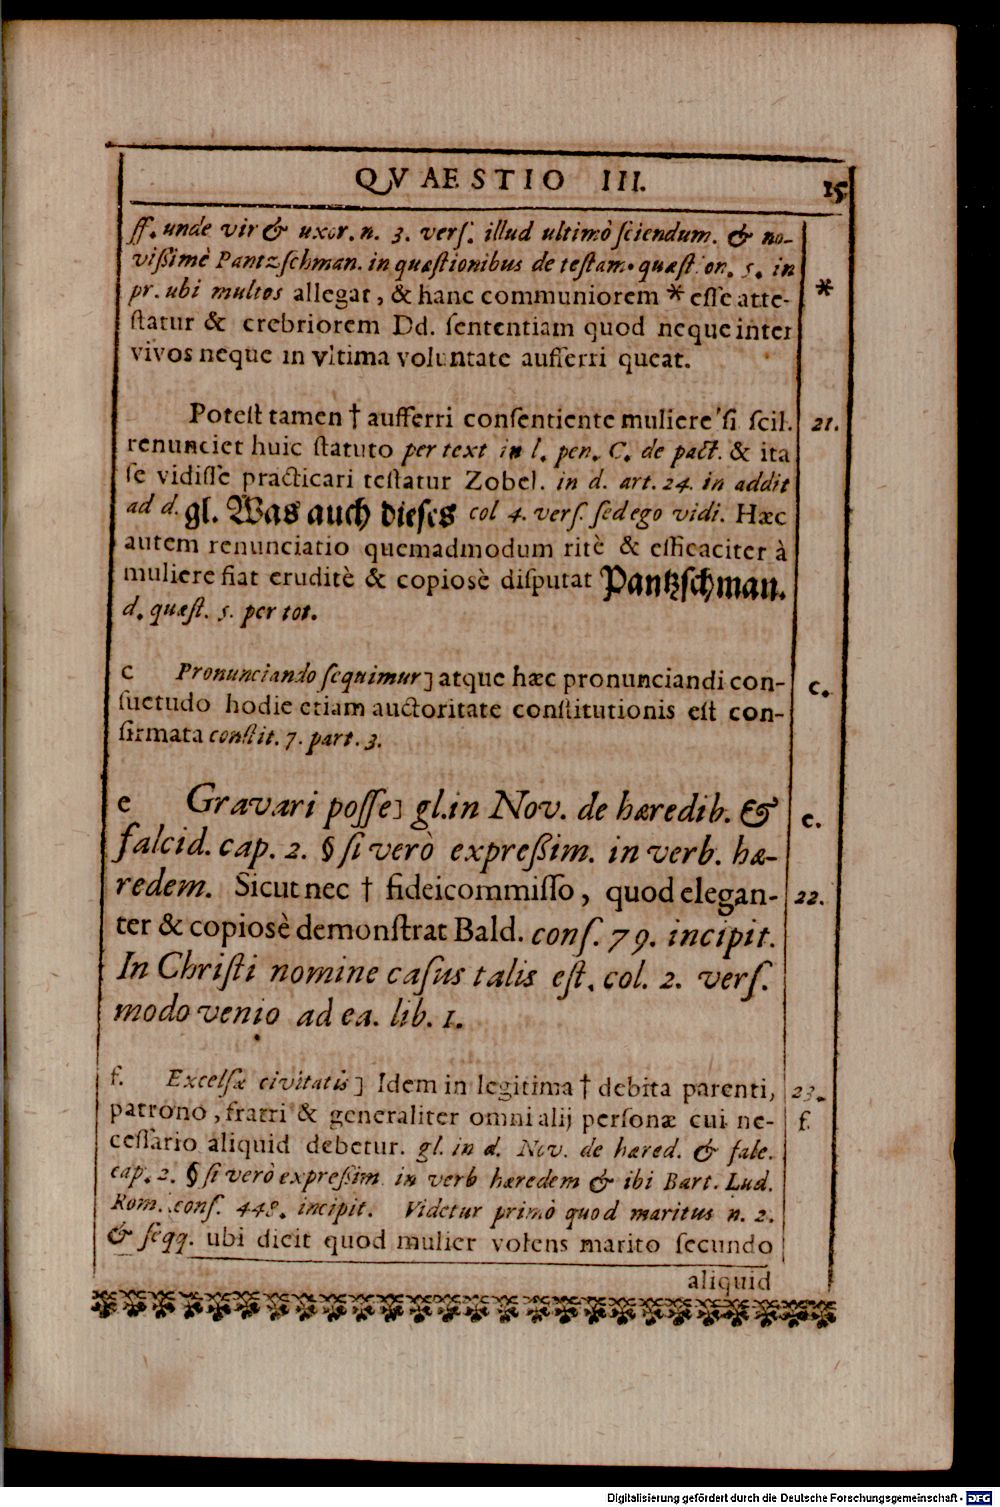 QVAESTIO III. 15
ff. unde vir & uxor. n. 3. verſ. illud ultimò ſciendum. & no-
vißimè Pantzſchman. in quæſtionibus de teſtam. quæſtion. 5. in
pr. ubi multos allegat, & hanc communiorem * eſſe atte- *
ſtatur & crebriorem Dd. ſententiam quod neque inter
vivos neque in vltima voluntate aufferri queat.
Poteſt tamen † aufferri conſentiente muliere ſi ſcil. 21.
renunciet huic ſtatuto per text in l. pen. C. de pact. & ita
ſe vidiſſe practicari teſtatur Zobel. in d. art. 24. in addit
ad d. gl. Was auch dieſes col 4. verſ. ſed ego vidi. Hæc
autem renunciatio quemadmodum ritè & efficaciter à
muliere fiat eruditè & copiosè diſputat Pantzſchman.
d. quæſt. 5. per tot.
c Pronunciando ſequimur] atque hæc pronunciandi con- c.
ſuetudo hodie etiam auctoritate conſtitutionis eſt con-
firmata conſtit. 7. part. 3.
e Gravari poſſe] gl. in Nov. de hæredib. & e.
falcid. cap. 2. § ſi verò expreßim. in verb. hæ-
redem. Sicut nec † fideicommiſſo, quod elegan- 22.
ter & copiosè demonſtrat Bald. conſ. 79. incipit.
In Chriſti nomine caſus talis eſt. col. 2. verſ.
modo venio ad ea. lib. 1.
f. Excelſæ civitatis] Idem in legitima † debita parenti, 23.
patrono, fratri & generaliter omni alij perſonæ cui ne- f.
ceſſario aliquid debetur. gl. in d. Nov. de hæred. & falc.
cap. 2. § ſi verò expreßim in verb hæredem & ibi Bart. Lud.
Rom. conſ. 448. incipit. Videtur primò quod maritus n. 2.
& ſeqq. ubi dicit quod mulier volens marito ſecundo
aliquid
Digitalisierung gefördert durch die Deutsche Forschungsgemeinschaft - DFG